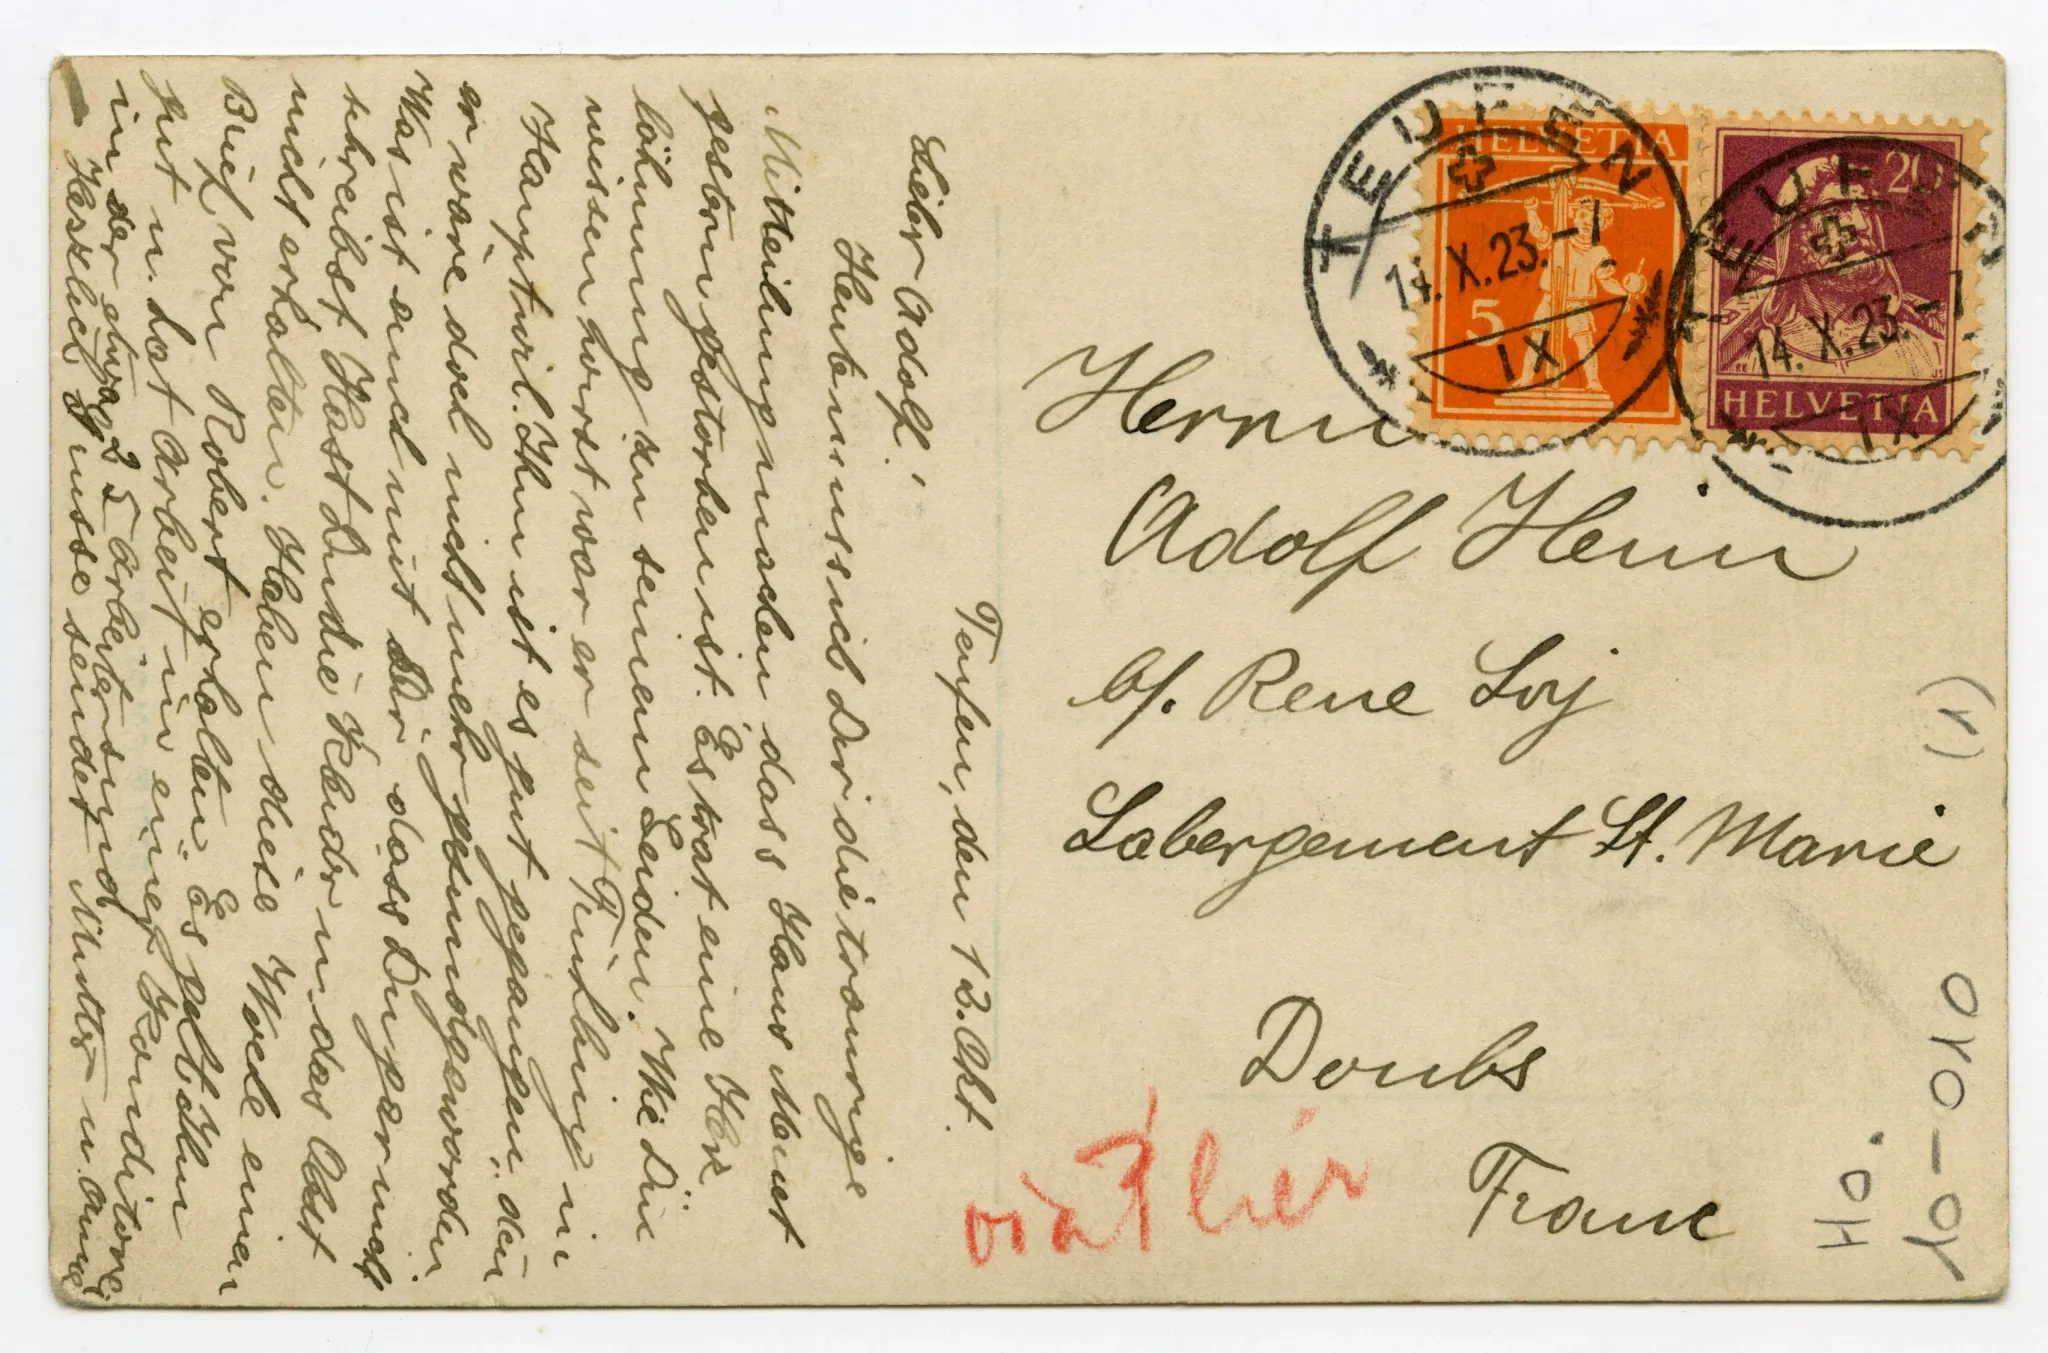 Teufen, den 12. Okt.
Lieber Adolf!
Heute muss ich Dir die traurige
Mitteilung machen dass Hans Menet
gestern gestorben ist. Es trat eine Herz
löhmung zu seinem Leiden. Wie Du
wissen wirst war er seit Frühling in
Hauptwil. Ihm ist es gut gegangen, den
er wäre doch nicht mehr gesund geworden.
Was ist auch mit Dir dass Du gar nicht
schreibst. Hast Du die Kleider u. das Obst
nicht erhalten. Haben diese Woche einen
Brief von Robert erhalten. Es geht Ihm
gut u. hat Arbeit in einer Konditorei
in der etwa 25 Arbeiter sind
Herzlich Grüsse sendet Mutter u. Anna
TEUFEN
14.X.23.-7
IX
HELVETIA
5
TEUFEN
14.X.23.-7
IX
20
HELVETIA
Herrn
Adolf Hein
b/. Rene Loij
Labergement St. Marie
Doubs
Franc
via
Ho.
10-010
(1)